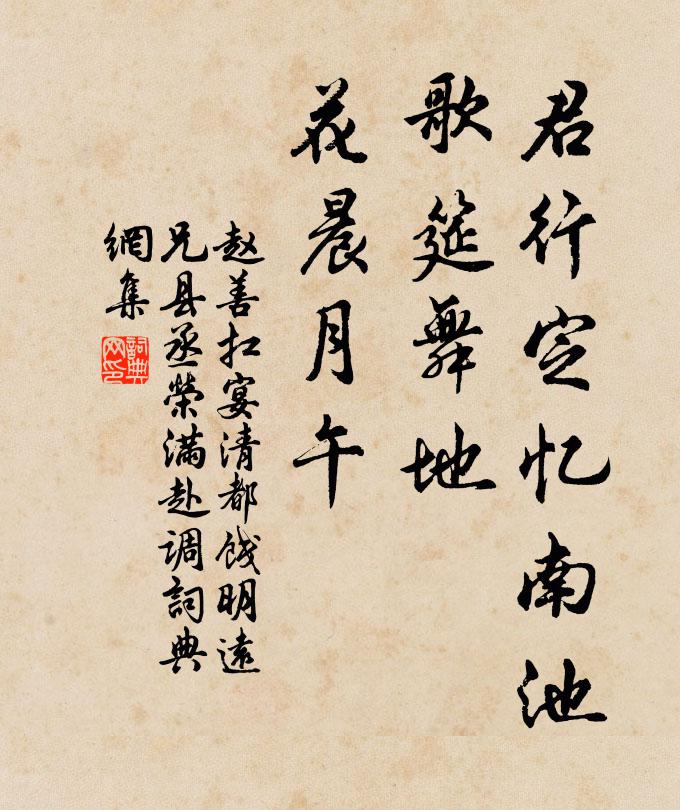 君行定忆南池
歌筵舞地
花晨月午
赵善扛宴清都饯明遠
兄县丞荣满赴调詞典
網集
詞典
网印